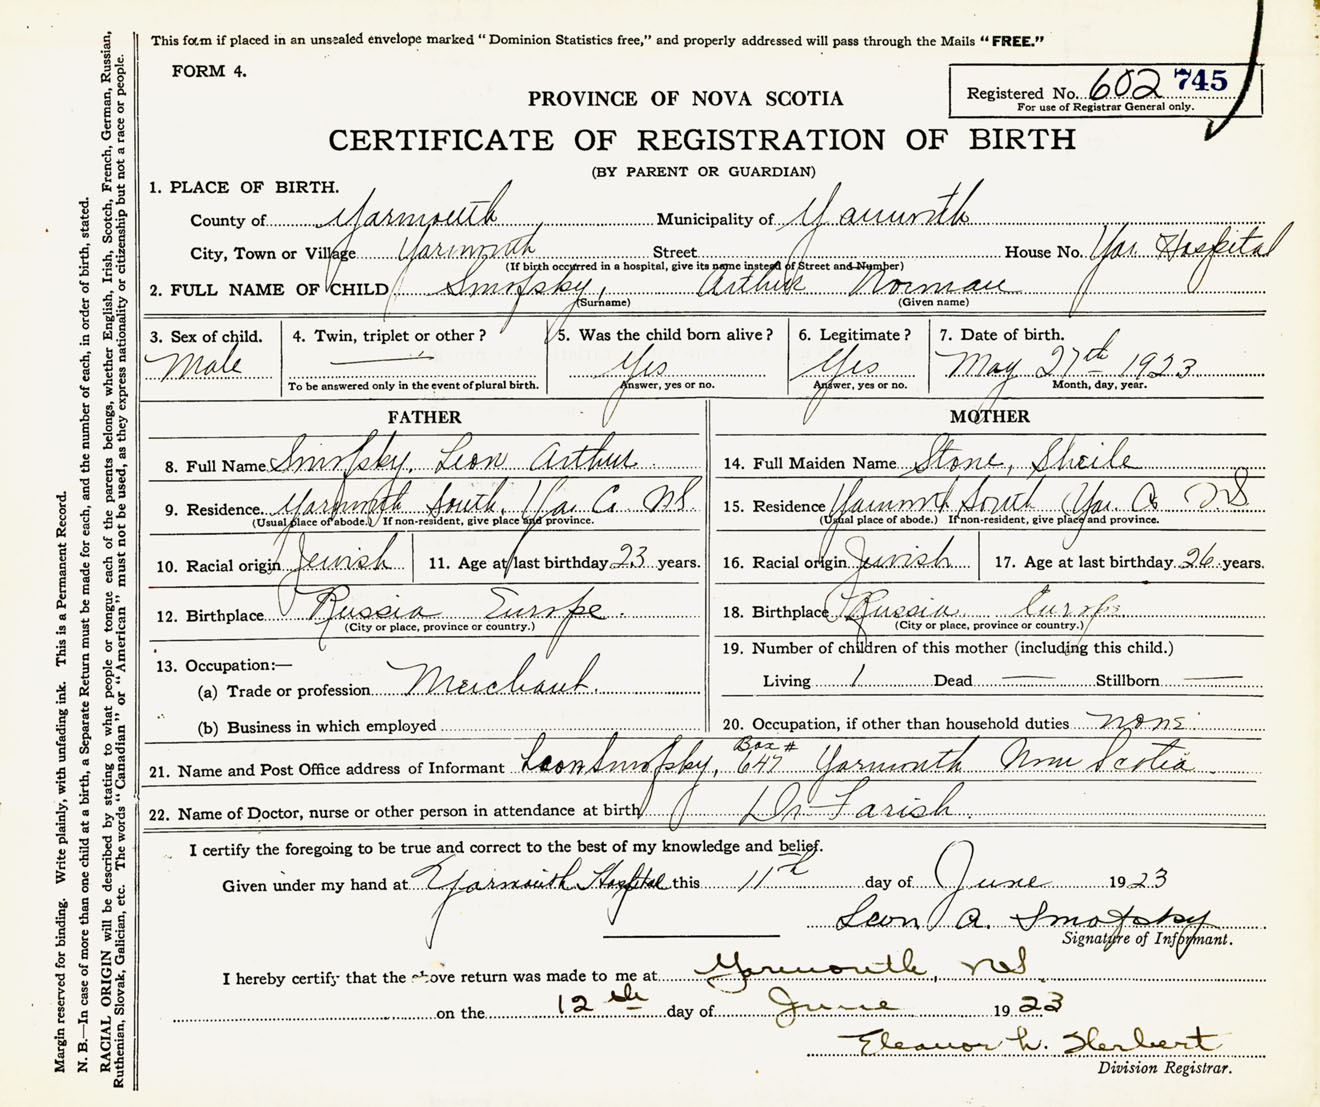 This form if placed in an unsealed envelope marked "Dominion Statistics free," and properly addressed will pass through the Mails "FREE."
FORM 4.
Registered No. 602 745
For use of Registrar General only.
PROVINCE OF NOVA SCOTIA
CERTIFICATE OF REGISTRATION OF BIRTH
(BY PARENT OR GUARDIAN)
1. PLACE OF BIRTH.
County of Yarmouth Municipality of Yarmouth
City, Town or Village Yarmouth Street House No. Yar Hospital
(If birth occurred in a hospital, give its name instead of Street and Number)
2. FULL NAME OF CHILD Smofsky, Arthur Norman
(Surname) (Given name)
3. Sex of child. 4. Twin, triplet or other ? 5. Was the child born alive ? 6. Legitimate ? 7. Date of birth.
Male — Yes Yes May 27th 1923
To be answered only in the event of plural birth. Answer, yes or no. Answer, yes or no. Month, day, year.
FATHER
8. Full Name Smofsky, Leon Arthur
9. Residence. Yarmouth South, Yar. Co. NS.
(Usual place of abode.) If non-resident, give place and province.
10. Racial origin Jewish 11. Age at last birthday 23 years.
12. Birthplace Russia Europe.
(City or place, province or country.)
13. Occupation:—
(a) Trade or profession Merchant.
(b) Business in which employed
MOTHER
14. Full Maiden Name Stone, Sheile
15. Residence Yarmouth South Yar. Co NS
(Usual place of abode.) If non-resident, give place and province.
16. Racial origin Jewish 17. Age at last birthday 26 years.
18. Birthplace Russia Europe
(City or place, province or country.)
19. Number of children of this mother (including this child.)
Living 1 Dead — Stillborn —
20. Occupation, if other than household duties none.
21. Name and Post Office address of Informant Leon Smofsky, Box # 647 Yarmouth Nova Scotia.
22. Name of Doctor, nurse or other person in attendance at birth Dr. Farish.
I certify the foregoing to be true and correct to the best of my knowledge and belief.
Given under my hand at Yarmouth Hospital this 11th day of June 1923
Leon A. Smofsky
Signature of Informant.
I hereby certify that the above return was made to me at Yarmouth, NS.
on the 12th day of June 1923
Eleanor L. Herbert
Division Registrar.
Margin reserved for binding. Write plainly, with unfading ink. This is a Permanent Record.
N. B.—In case of more than one child at a birth, a Separate Return must be made for each, and the number of each, in order of birth, stated.
RACIAL ORIGIN will be described by stating to what people or tongue each of the parents belongs, whether English, Irish, Scotch, French, German, Russian,
Ruthenian, Slovak, Galician, etc. The words "Canadian" or "American" must not be used, as they express nationality or citizenship but not a race or people.